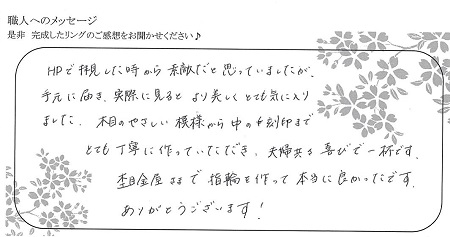 職人へのメッセージ
是非 完成したリングのご感想をお聞かせください♪
HPで拝見した時から素敵だと思っていましたが、
手元に届き、実際に見ると より美しく とても気に入り
ました。木目のやさしい模様から中の刻印まで
とても丁寧に作っていただき、夫婦共々喜びで一杯です。
杢目金屋さまで指輪を作って本当に良かったです。
ありがとうございます!